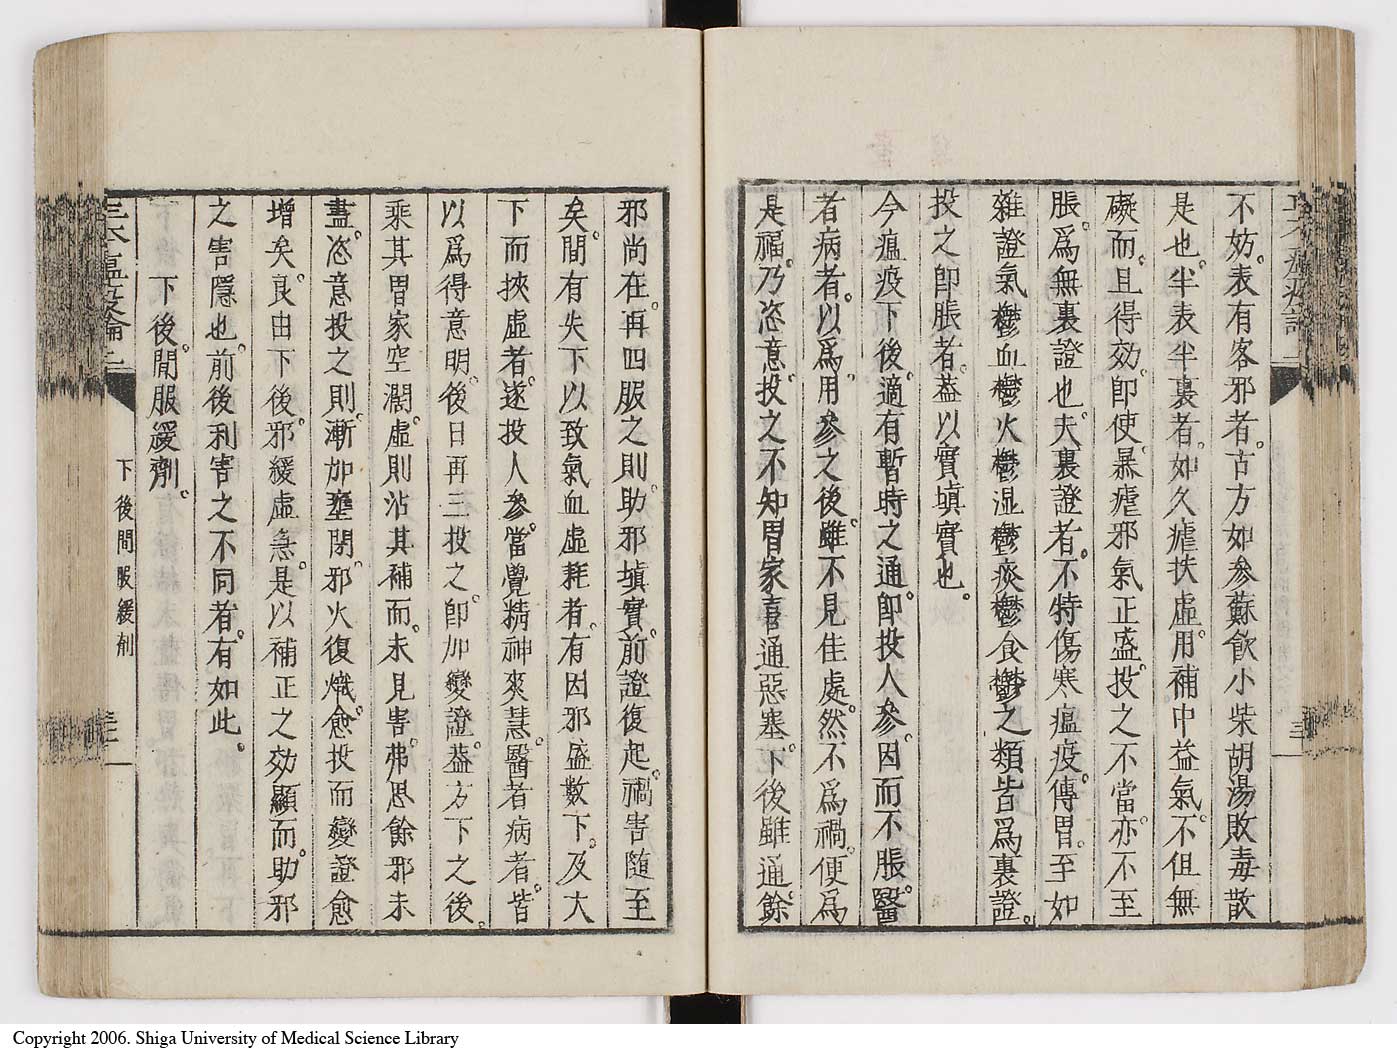 不妨。表有客邪者。古方如參蘇飮小柴胡湯敗毒散
是也。半表半裏者。如久瘧扶虛用。補中益氣。不但無
礙而。且得効。卽使暴瘧邪氣正盛投之不當。亦不至
脹。爲無裏證也。夫裏證者。不特傷寒瘟疫。傳胃。至如
雜證氣鬱血鬱火鬱湿鬱痰鬱食鬱之類皆爲裏證。
投之卽脹者。葢以實塡實也。
今瘟疫下後。適有暫時之通。卽投人參。因而不脹。醫
者病者。以爲。用參之後。雖不見佳處。然不爲禍。便爲
是福。乃恣意。投之不知胃家喜通惡塞。下後雖通。餘
邪尚在。再四服之則。助邪塡實。前證復起。禍害隨至
矣。間有失下以致氣血虛耗者。有因邪盛數下。及大
下而挾虛者。遂投人參。當覺精神爽慧。醫者病者。皆
以爲得意明。後日再三投之。卽加變證。葢方下之後。
乘其胃家空濶。虛則沾其補而。未見害。弗思餘邪未
盡。恣意投之則。漸加壅閉。邪火復熾。愈投而變證愈
增矣。良由下後。邪緩虛急。是以補正之効顯而。助邪
之害隱也。前後利害之不同者。有如此。
下後間服緩劑。
下後間服緩劑
三